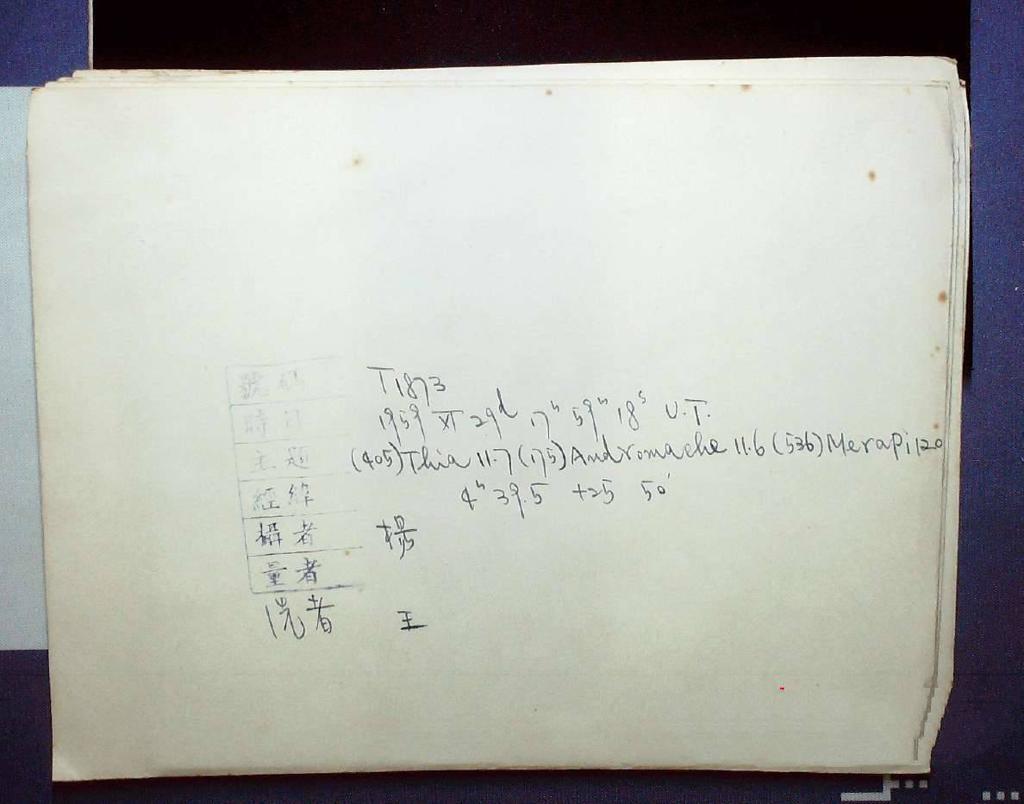 號碼 T1873
時日 1959 XI 29d 17h 59m 18s U.T.
主題 (405)Thia 11.7 (175)Andromache 11.6 (536)Merapi 12.0
經緯 4h 39.5 +25 50'
攝者 楊
量者
洗者 王